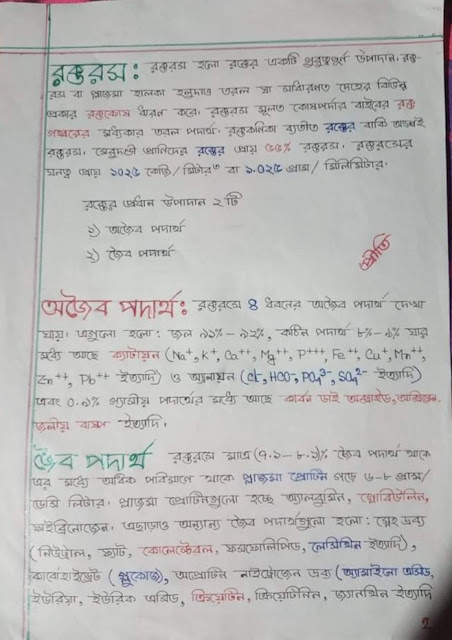 রক্তরস: রক্তরস হলো রক্তের একটি গুরুত্বপূর্ণ উপাদান। রক্ত-
রস বা প্লাজমা হালকা হলুদাভ তরল যা সাধারণত দেহের বিভিন্ন
প্রকার রক্তকোষ ধারন করে। রক্তরস মূলত কোষপর্দার বাইরের রক্ত
গহ্বরের মধ্যকার তরল পদার্থ। রক্তকনিকা ব্যতীত রক্তের বাকি অংশই
রক্তরস। মেরুদণ্ডী প্রাণিদের রক্তের প্রায় ৫৫% রক্তরস। রক্তরসের
ঘনত্ব প্রায় ১০২৫ কেজি/মিটার³ বা ১.০২৫ গ্রাম/মিলিমিটার।
রক্তের প্রধান উপাদান ২টি
১) অজৈব পদার্থ
২) জৈব পদার্থ
প্রীতি
অজৈব পদার্থ: রক্তরসে ৪ ধরনের অজৈব পদার্থ দেখা
যায়। এগুলো হলো: জল ৯১%-৯২%, কঠিন পদার্থ ৮%-৯% যার
মধ্যে আছে ক্যাটায়ন (Na⁺, K⁺, Ca⁺⁺, Mg⁺⁺, P⁺⁺⁺, Fe⁺⁺, Cu⁺, Mn⁺⁺,
Zn⁺⁺, Pb⁺⁺ ইত্যাদি) ও অ্যানায়ন (Cl⁻, HCO⁻, PO₄³⁻, SO₄²⁻ ইত্যাদি)
এবং ০.৯% গ্যাসীয় পদার্থের মধ্যে আছে কার্বন ডাই অক্সাইড, অক্সিজেন,
জলীয় বাষ্প ইত্যাদি।
জৈব পদার্থ রক্তরসে মাত্র (৭.১-৮.১)% জৈব পদার্থ থাকে
এর মধ্যে অধিক পরিমাণে থাকে প্লাজমা প্রোটিন গড়ে ৬-৮ গ্রাম/
ডেসি লিটার। প্লাজমা প্রোটিনগুলো হচ্ছে অ্যালবুমিন, গ্লোবিউলিন,
ফাইব্রিনোজেন। এছাড়াও অন্যান্য জৈব পদার্থগুলো হলো: স্নেহ দ্রব্য
(নিউট্রাল, ফ্যাট, কোলেস্টেরল, ফসফোলিপিড, লেসিথিন ইত্যাদি),
কার্বোহাইড্রেট (গ্লুকোজ), অপ্রোটিন নাইট্রোজেন দ্রব্য (অ্যামাইনো এসিড,
ইউরিয়া, ইউরিক এসিড, ক্রিয়েটিন, ক্রিয়েটিনিন, জ্যানথিন ইত্যাদি
2